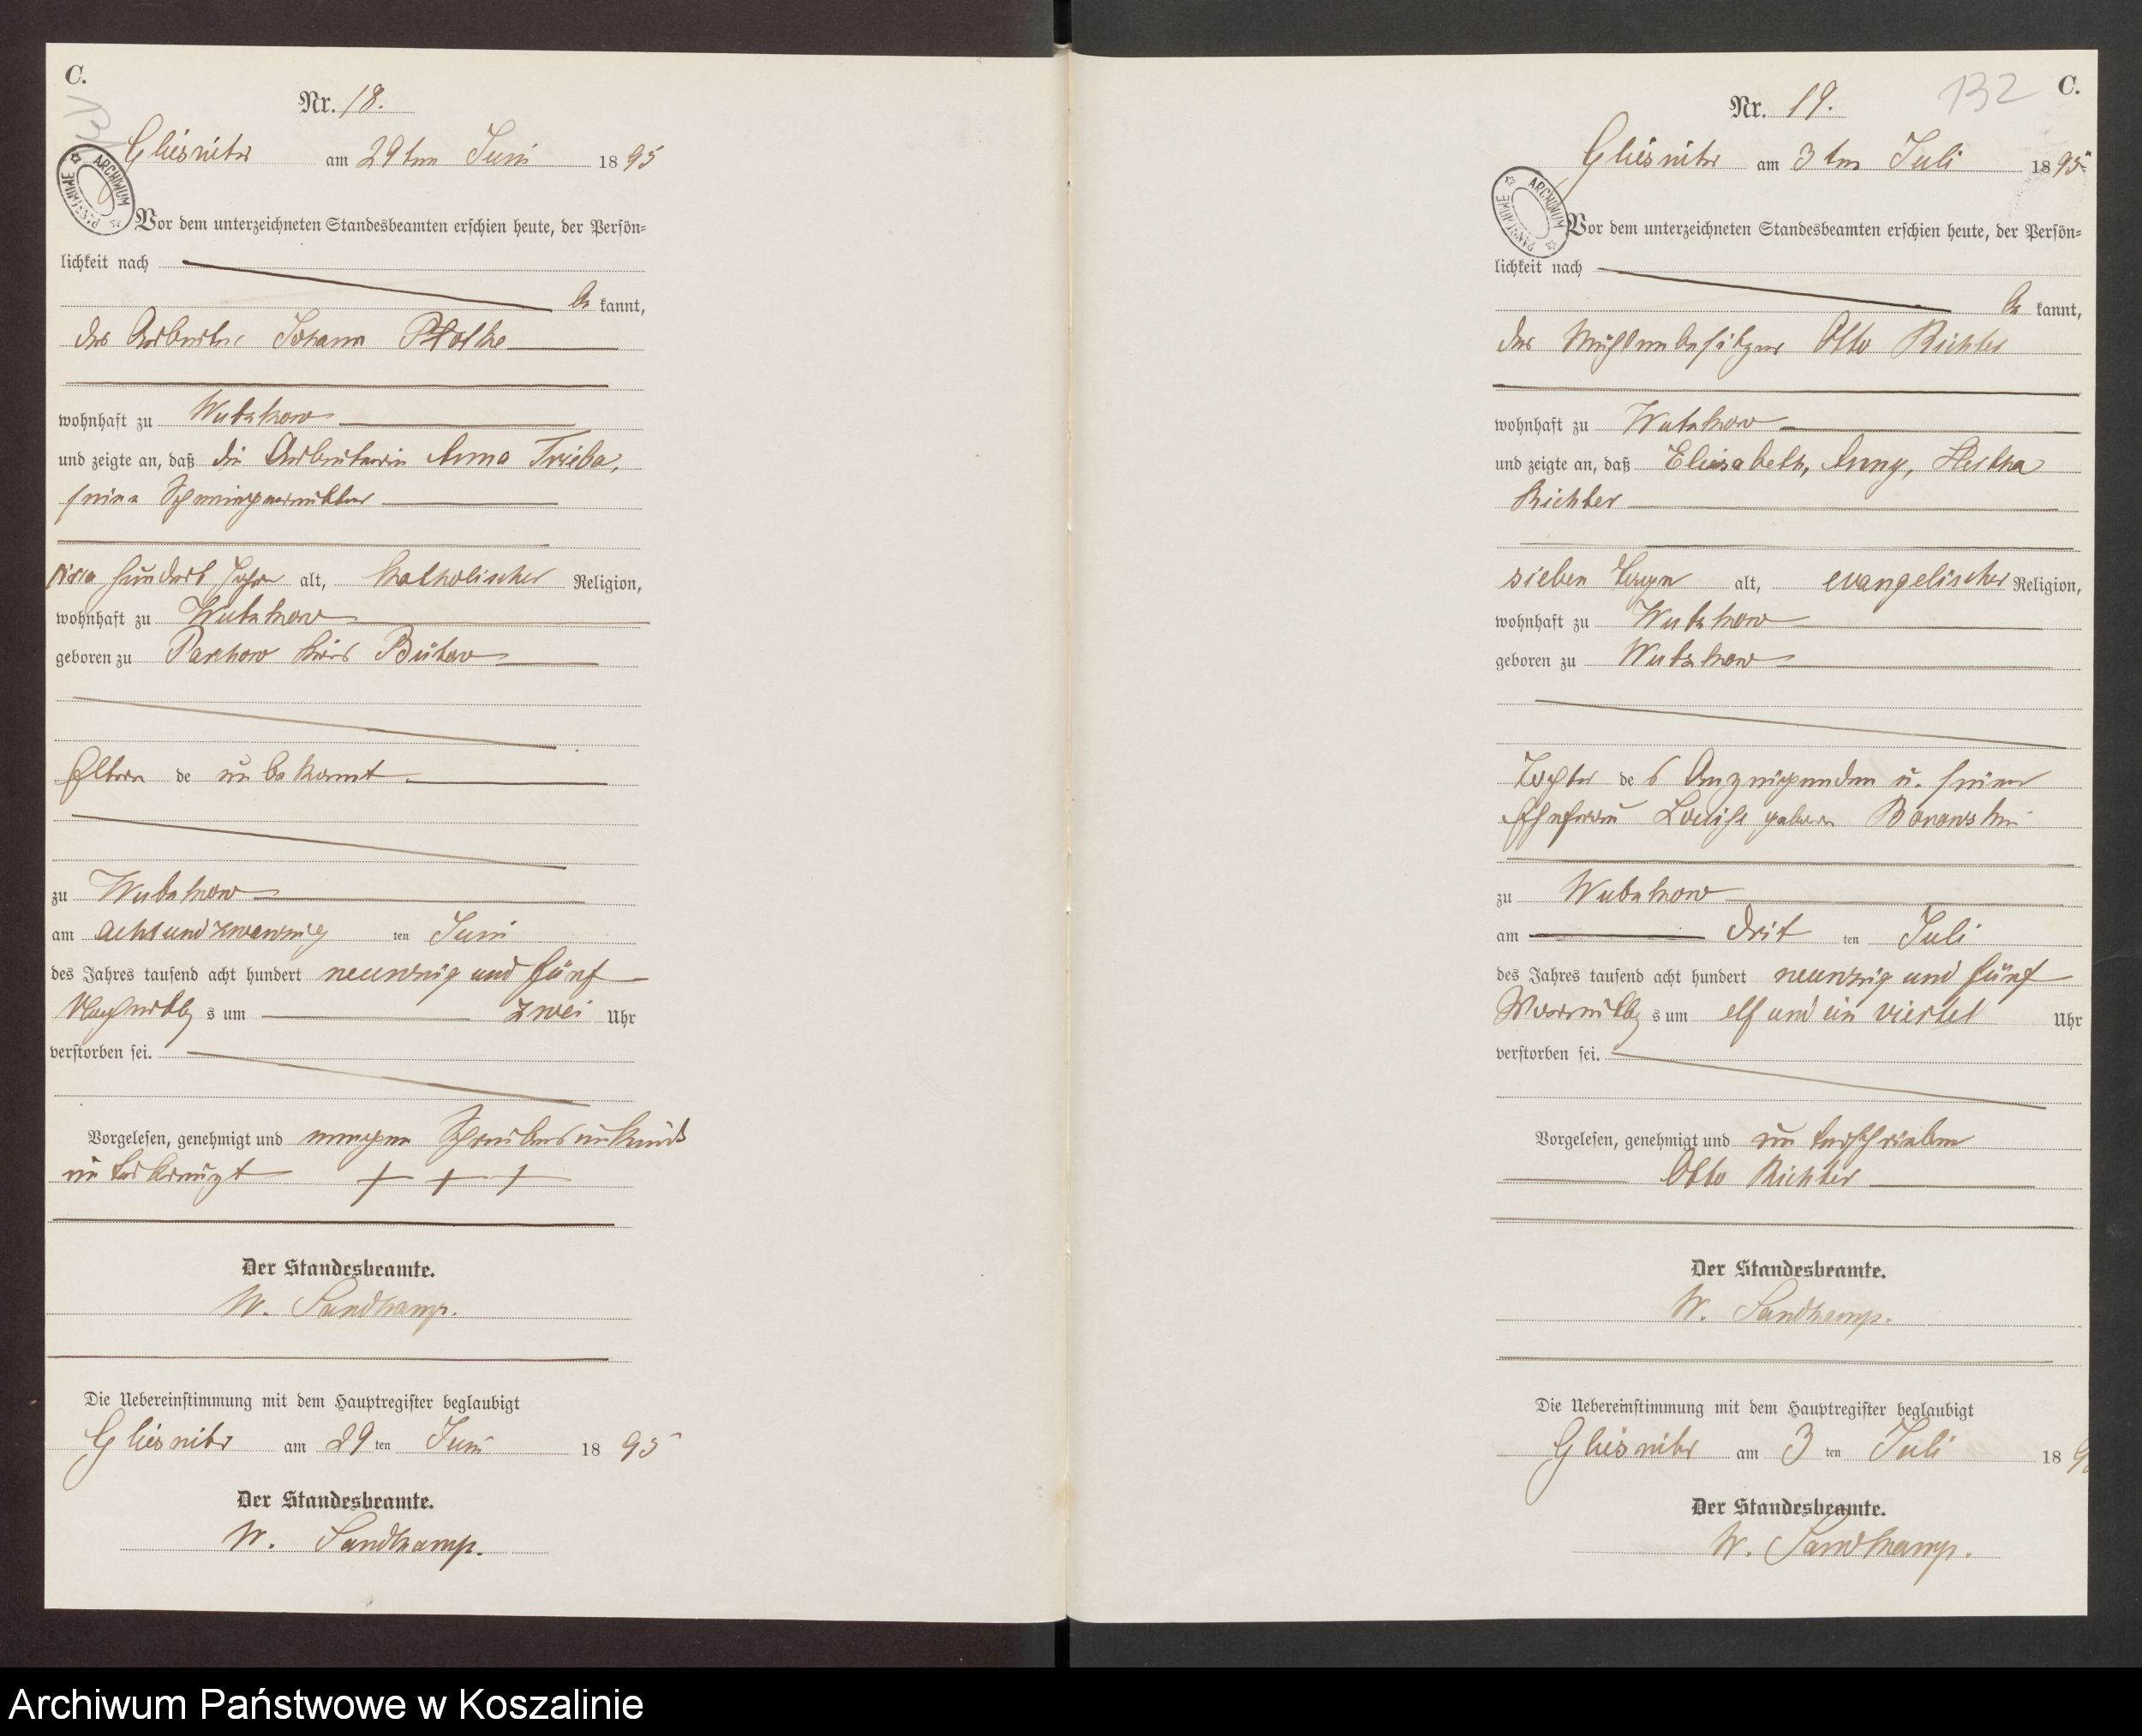 C.
Nr. 18.
ARCHIWUM PAŃSTWOWE
Gliesnitz am 29ten Juni 1895
Vor dem unterzeichneten Standesbeamten erschien heute, der Persön=
lichkeit nach
be kannt,
der Arbeiter Johann
wohnhaft zu Wutzkow
und zeigte an, daß die Arbeiterin Anna Trieba,
seine Schwiegermutter
circa hundert Jahre alt, katholischer Religion,
wohnhaft zu Wutzkow
geboren zu Parchow Kreis Bütow
Eltern de unbekannt
zu Wutzkow
am achtundzwanzig ten Juni
des Jahres tausend acht hundert neunzig und fünf
Nachmittags um zwei Uhr
verstorben sei.
Vorgelesen, genehmigt und wegen Schreibensunkunde
unterkreuzt + + +
Der Standesbeamte.
W. Sandkamp.
Die Uebereinstimmung mit dem Hauptregister beglaubigt
Gliesnitz am 29 ten Juni 1895
Der Standesbeamte.
W. Sandkamp.
132
C.
Nr. 19.
ARCHIWUM PAŃSTWOWE
Gliesnitz am 3ten Juli 1895
Vor dem unterzeichneten Standesbeamten erschien heute, der Persön=
lichkeit nach
be kannt,
der Mühlenbesitzer Otto Richter
wohnhaft zu Wutzkow
und zeigte an, daß Elisabeth, Anny, Hertha
Richter
sieben Tage alt, evangelischer Religion,
wohnhaft zu Wutzkow
geboren zu Wutzkow
Tochter des Anzeigenden u. seiner
Ehefrau Louise geboren
zu Wutzkow
am drit ten Juli
des Jahres tausend acht hundert neunzig und fünf
Vormittags um elf und ein viertel Uhr
verstorben sei.
Vorgelesen, genehmigt und unterschrieben
Otto Richter
Der Standesbeamte.
W. Sandkamp.
Die Uebereinstimmung mit dem Hauptregister beglaubigt
Gliesnitz am 3 ten Juli 189
Der Standesbeamte.
W. Sandkamp.
Archiwum Państwowe w Koszalinie